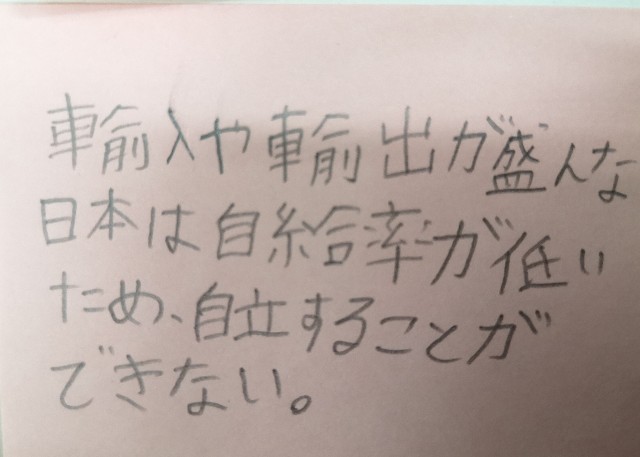 輸入や輸出が盛んな
日本は自給率が低い
ため、自立することが
できない。